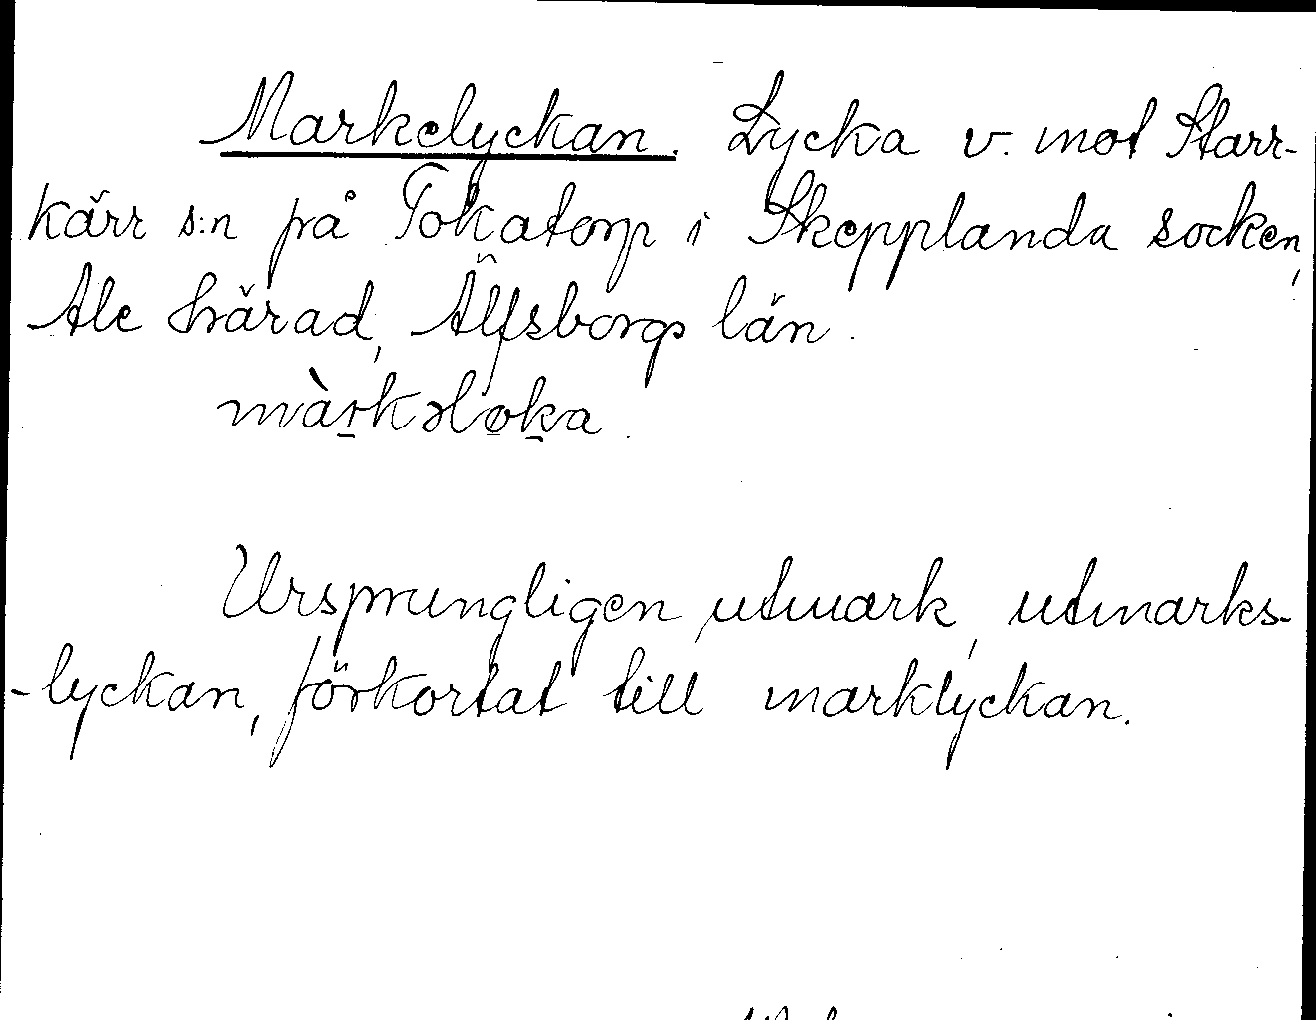 Markelyckan. Lycka v. mot Starr-
kärr s:n på Tokatorp i Skepplanda socken,
Ale härad, Älfsborgs län.
màrkələka.
Ursprungligen utmark, utmarks-
-lyckan, förkortat till marklyckan.